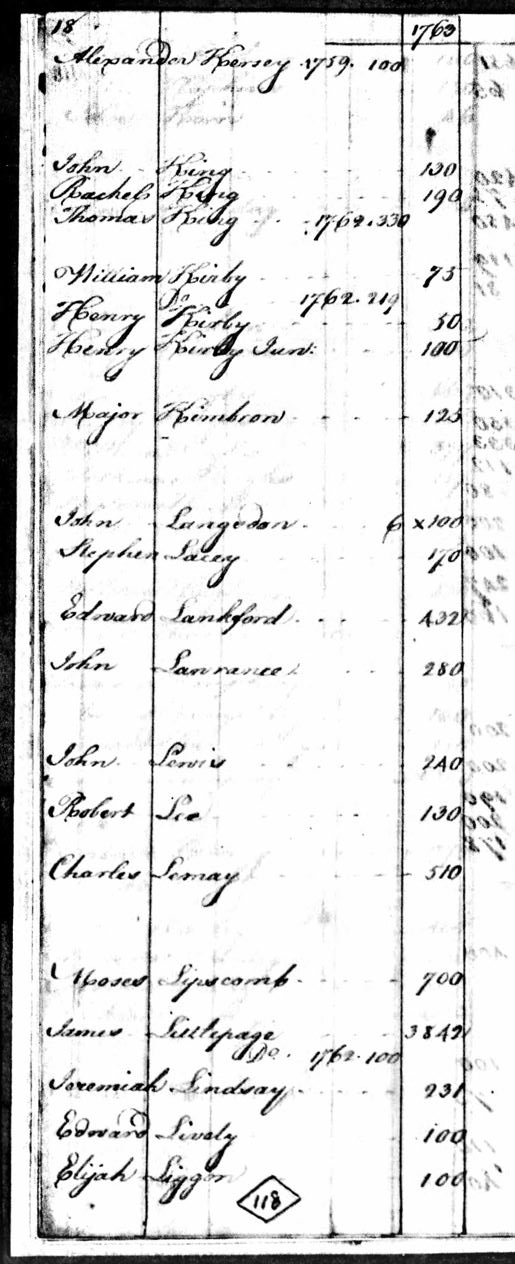 18 1763
Alexander Kersey 1759. 100
John King 130
Rachel King 190
Thomas King 1762.330
William Kirby 75
Do 1762.219
Henry Kirby 50
Henry Kirby Junr. 100
Major Kimbrow 125
John Langsdon 6 x 100
Stephen Lacey 170
Edward Lankford 432
John Lawrance 280
John Lewis 240
Robert Lee 130
Charles Lemay 510
Moses Lipscomb 700
James Littlepage 3842
Do. 1762.100
Jeremiah Lindsay 231
Edward Lively 100
Elijah Liggon 100
118